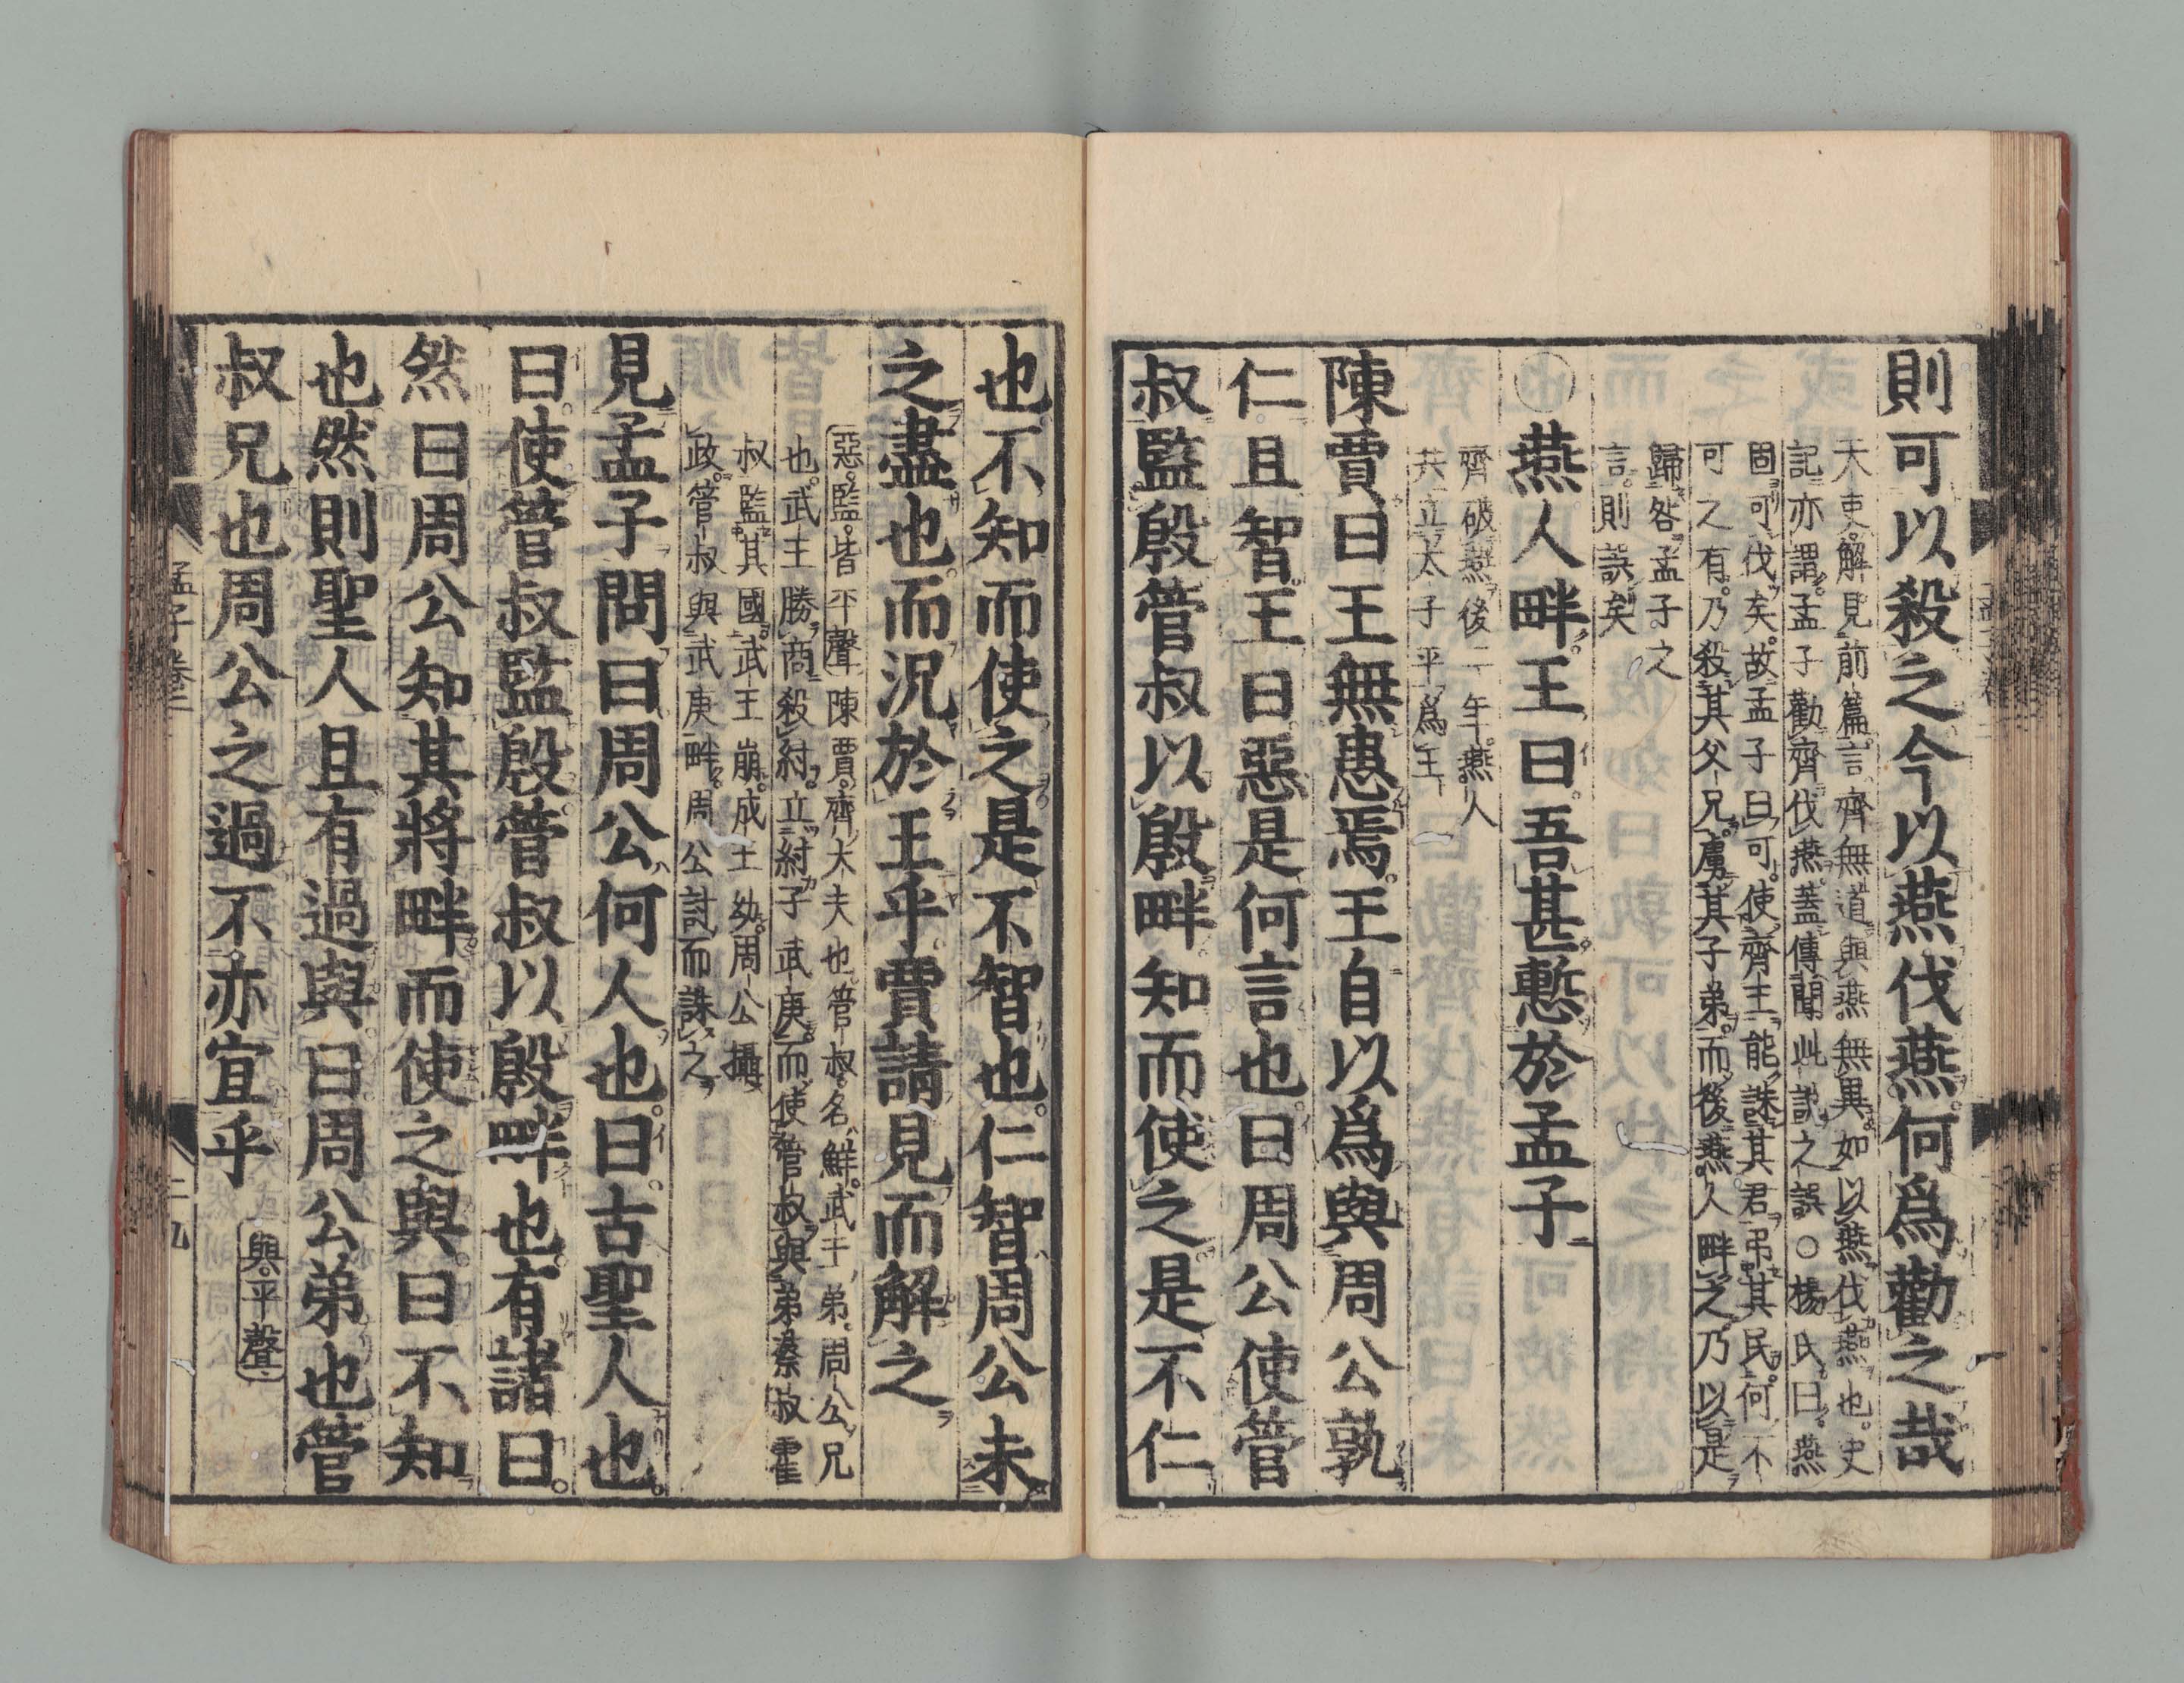 則可以殺之今以燕伐燕何爲勸之哉
天吏解見前篇言齊無道與燕無異如以燕伐燕也史
記亦謂孟子勸齊伐燕蓋傳聞此説之誤○楊氏曰燕
固可伐矣故孟子曰可使齊王能誅其君弔其民何不
可之有乃殺其父兄虜其子弟而後燕人畔之乃以是
歸咎孟子之
言則誤矣
○燕人畔王曰吾甚慙於孟子
齊破燕後二年燕人
共立太子平爲王
陳賈曰王無患焉王自以爲與周公孰
仁且智王曰惡是何言也曰周公使管
叔監殷管叔以殷畔知而使之是不仁
也不知而使之是不智也仁智周公未
之盡也而況於王乎賈請見而解之
惡監皆平聲陳賈齊大夫也管叔名鮮武王弟周公兄
也武王勝商殺紂立紂子武庚而使管叔與弟蔡叔霍
叔監其國武王崩成王幼周公攝
政管叔與武庚畔周公討而誅之
見孟子問曰周公何人也曰古聖人也
曰使管叔監殷管叔以殷畔也有諸曰
然曰周公知其將畔而使之與曰不知
也然則聖人且有過與曰周公弟也管
叔兄也周公之過不亦宜乎
與平聲
孟子卷二
二九